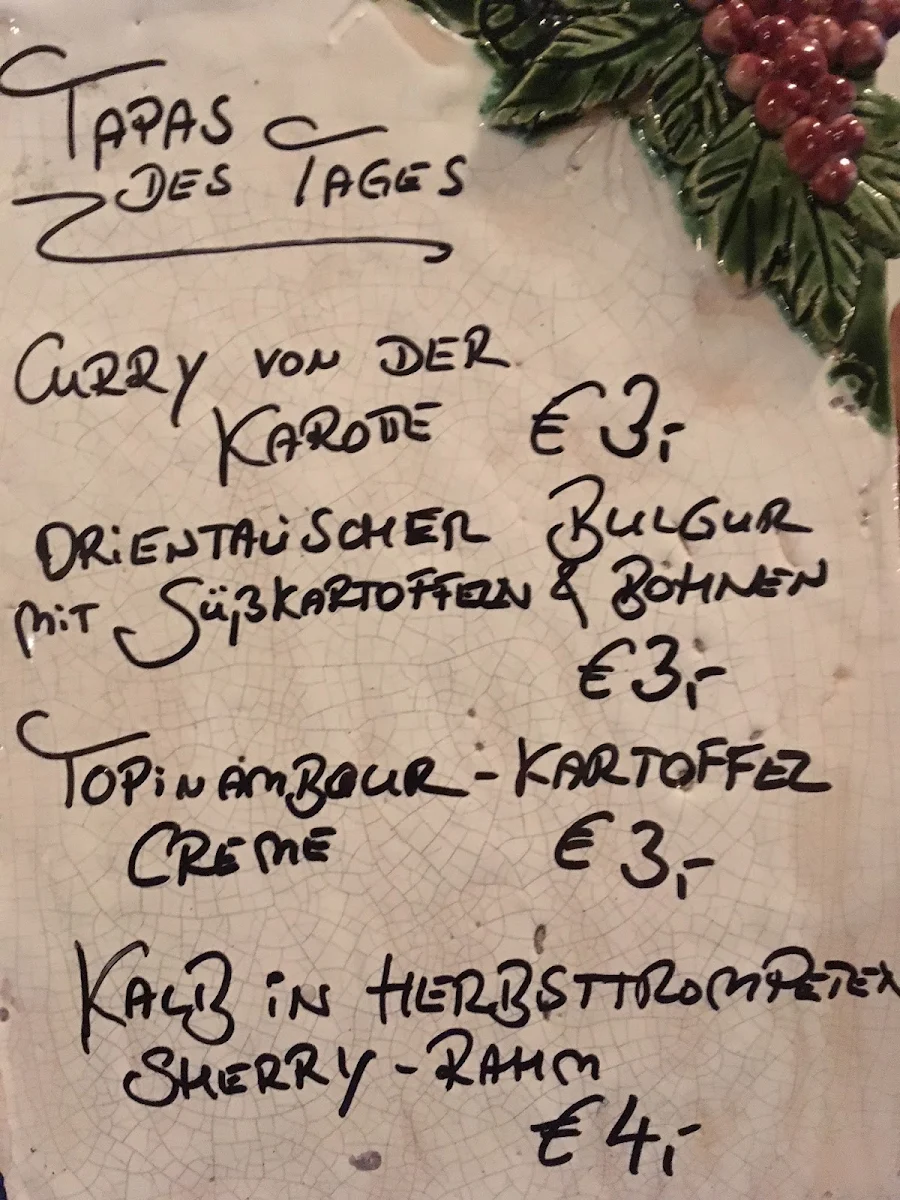 TAPAS
DES TAGES
CURRY VON DER
KAROTTE € 3,-
ORIENTALISCHER BULGUR
MIT SÜßKARTOFFELN & BOHNEN
€ 3,-
TOPINAMBOUR-KARTOFFEL
CREME € 3,-
KALB IN HERBSTTROMPETEN
SHERRY-RAHM
€ 4,-